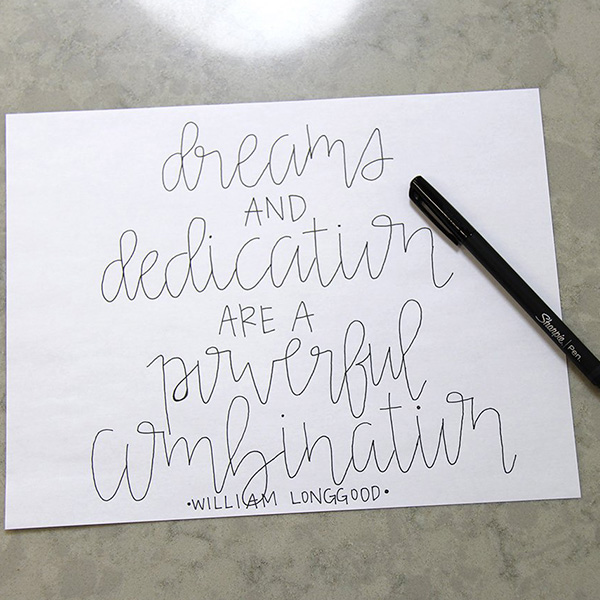 dreams
AND
dedication
ARE A
powerful
combination
•WILLIAM LONGGOOD•
Sharpie. | Pen.